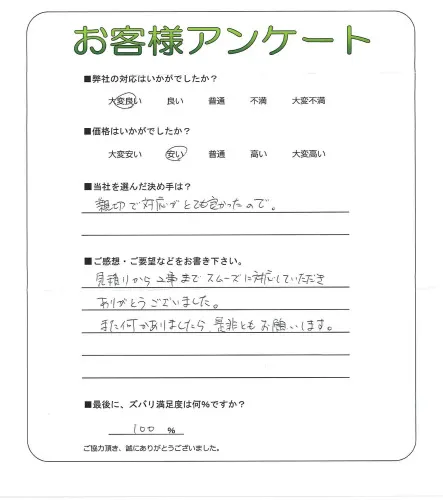 お客様アンケート
■弊社の対応はいかがでしたか?
大変良い 良い 普通 不満 大変不満
■価格はいかがでしたか?
大変安い 安い 普通 高い 大変高い
■当社を選んだ決め手は?
親切で対応がとても良かったので。
■ご感想・ご要望などをお書き下さい。
見積りから工事までスムーズに対応していただき
ありがとうございました。
また何かありましたら、是非ともお願いします。
■最後に、ズバリ満足度は何%ですか?
100 %
ご協力頂き、誠にありがとうございました。